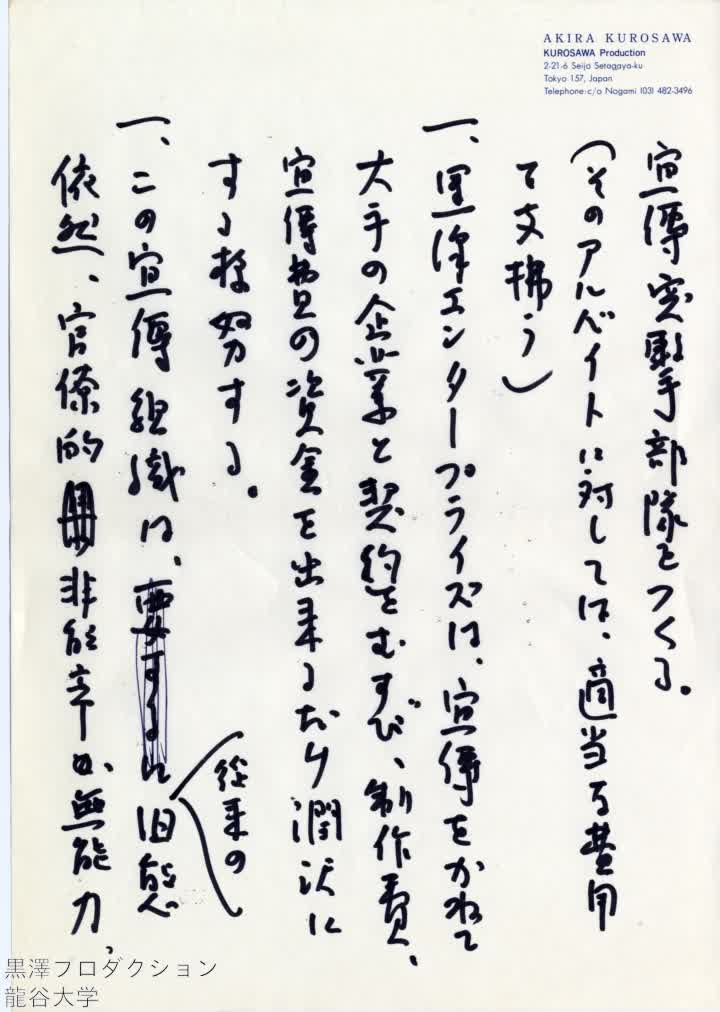 AKIRA KUROSAWA
KUROSAWA Production
2-21-6 Seijo Setagaya-ku
Tokyo 157, Japan
Telephone: c/o Nogami (03) 482-3496
宣傳突撃部隊をつくる。
(そのアルバイトに対しては、適当な費用
で支拂う)
一、黒澤エンタープライズは、宣傳をかねて
大手の企業と契約をむすび、制作費、
宣傳費の資金を出来るだけ潤沢に
する様努する。
一、この宣傳組織は、要するに旧態
従来の
依然、官僚的非能率か無能力、
黒澤プロダクション
龍谷大学